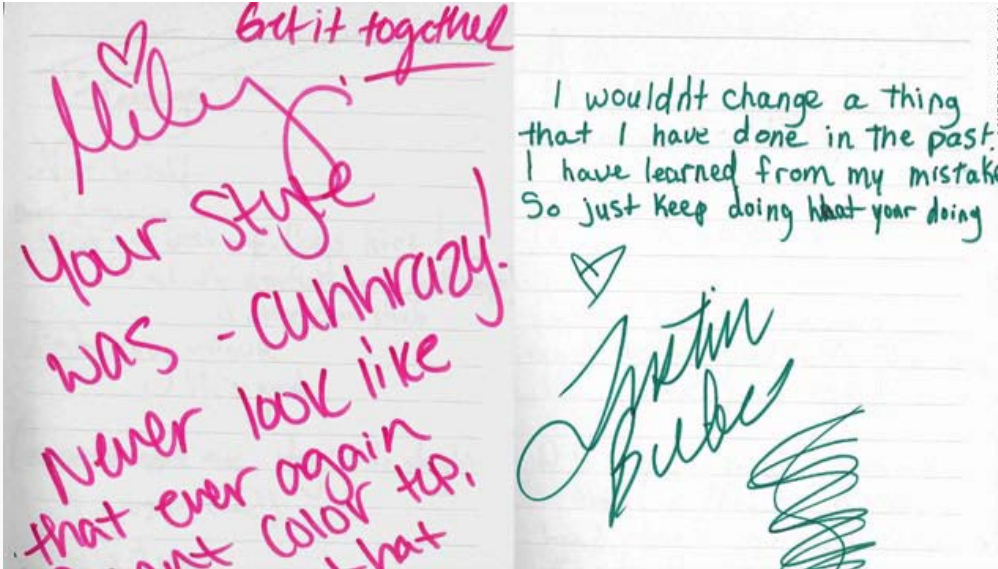 Get it together
Miley
Your style
was - cuhhrazy!
Never look like
that ever again
color top.
that
I wouldnt change a thing
that I have done in the past.
I have learned from my mistake
So just keep doing what your doing
Justin
Bieber